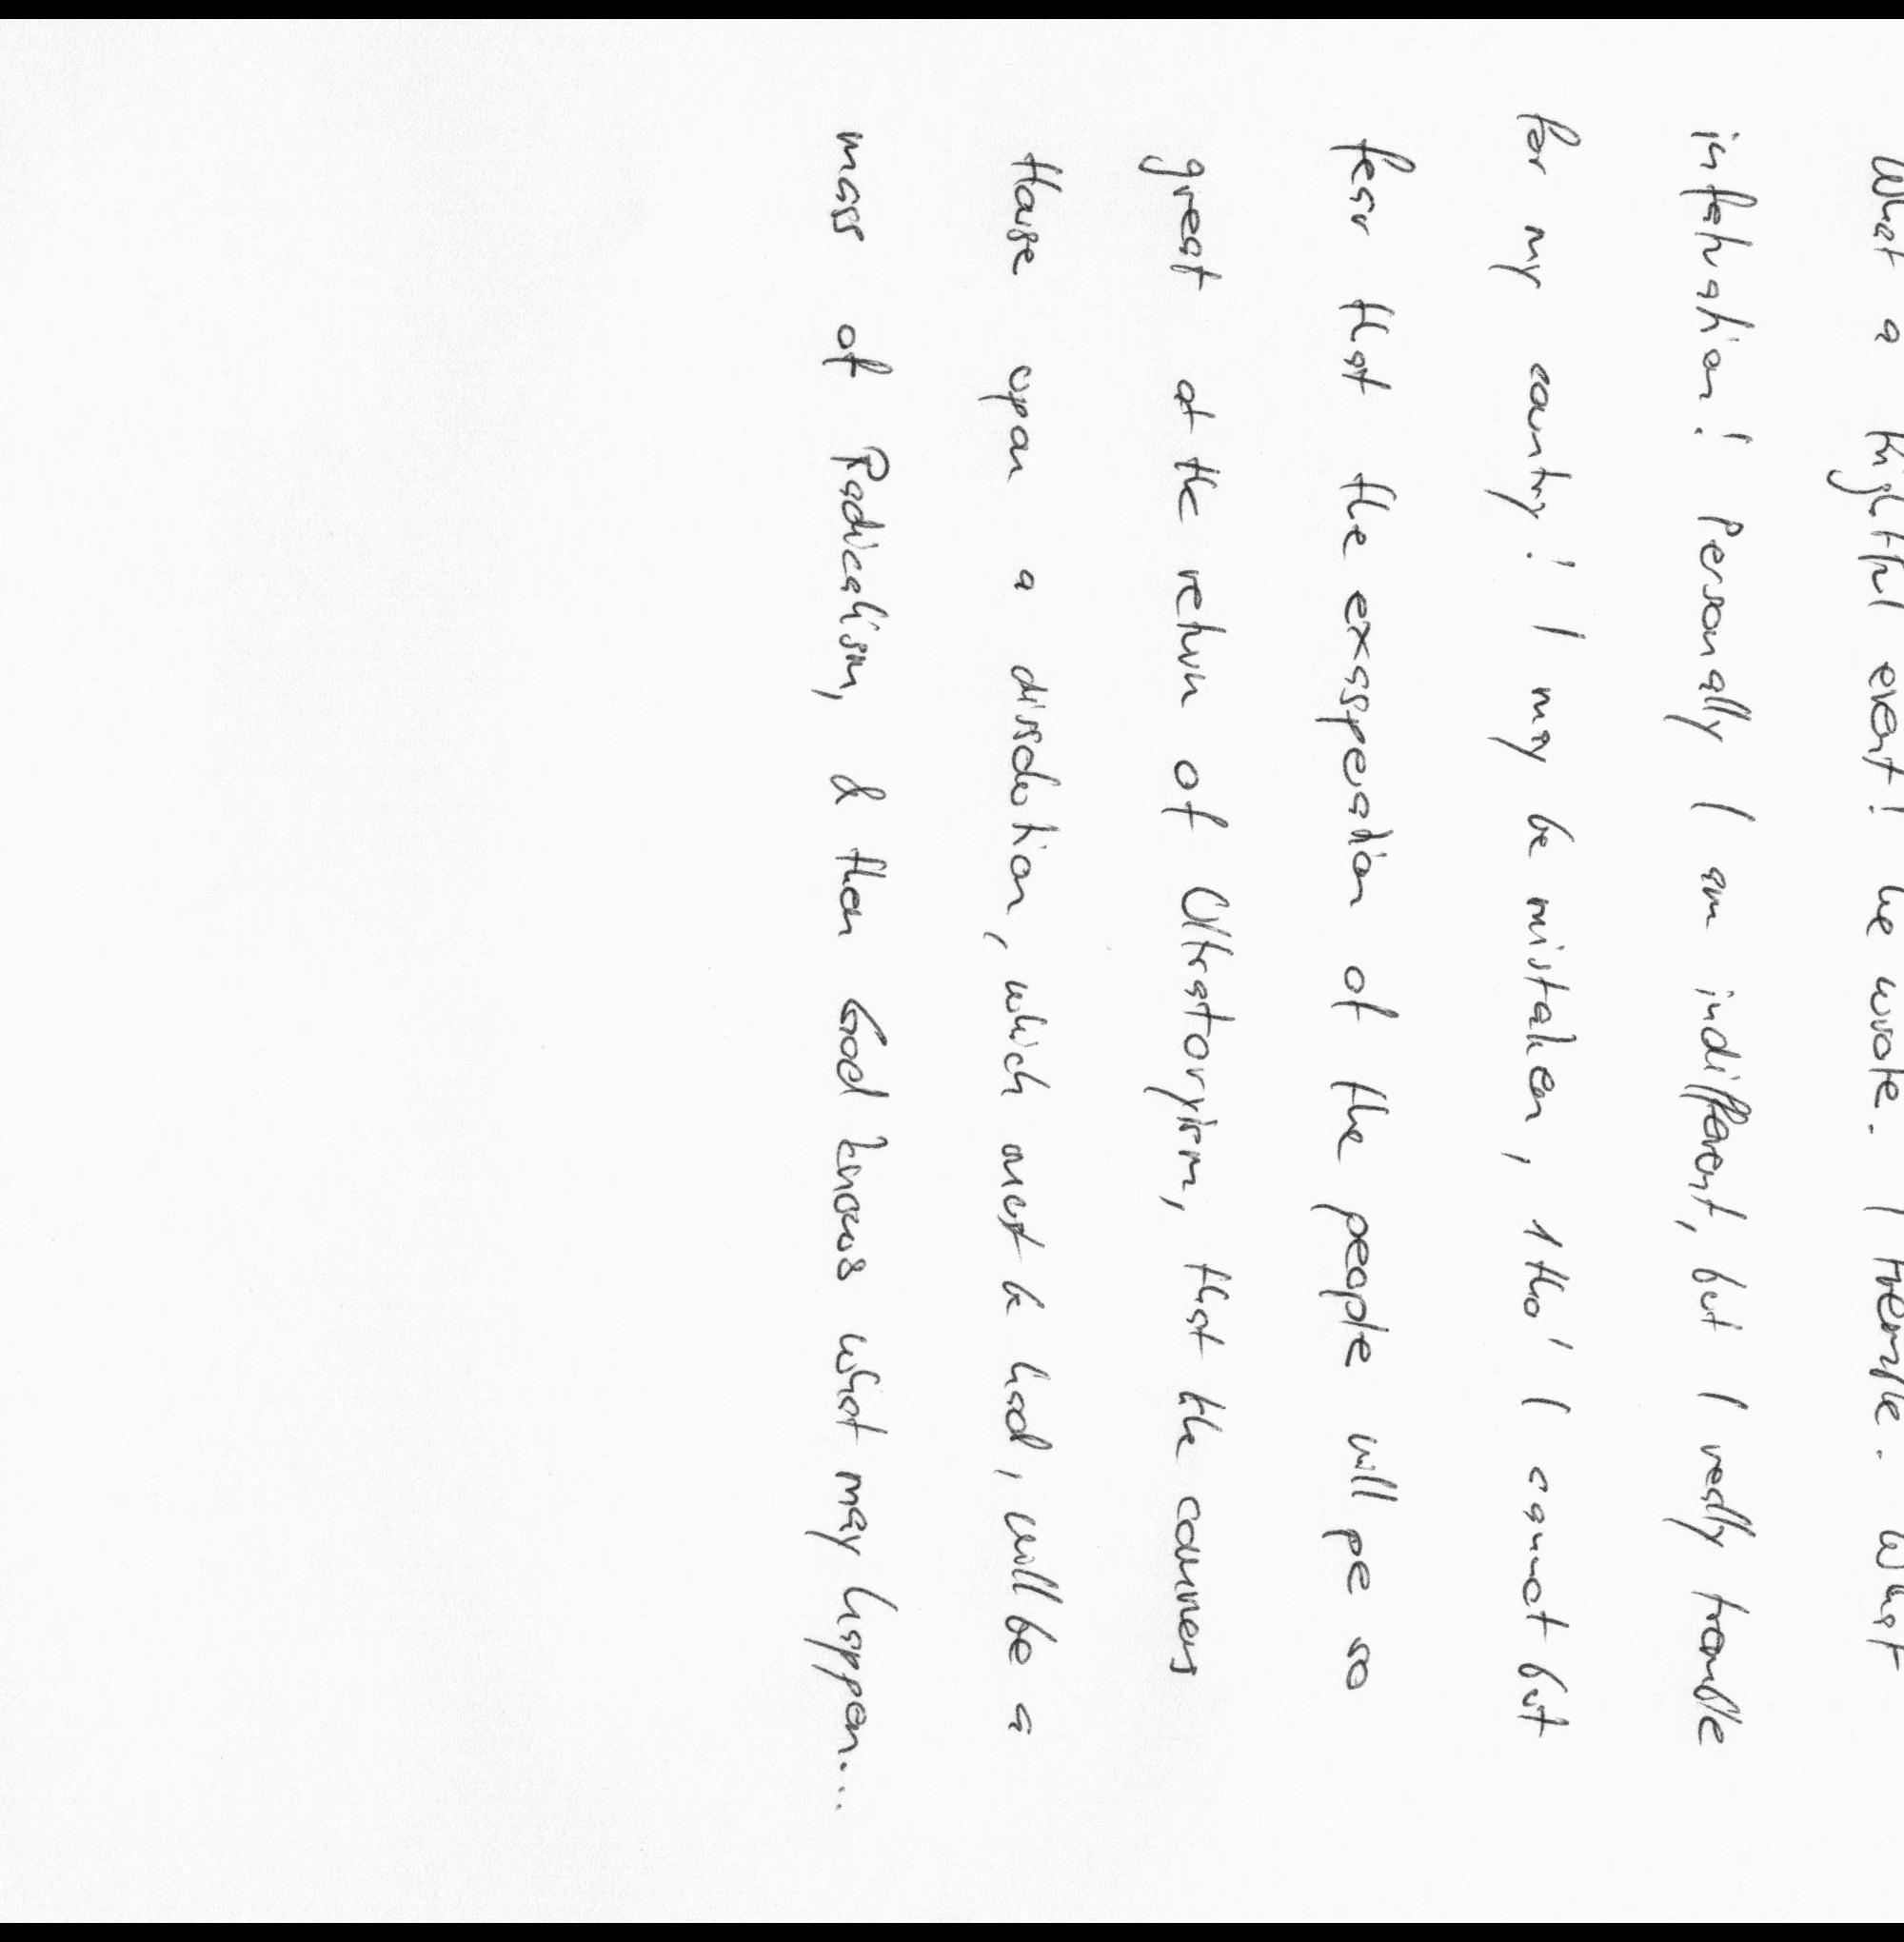 What a frightful event! he wrote. I tremble. What
infatuation! Personally I am indifferent, but I really tremble
for my country! I may be mistaken, 1 tho' I cannot but
fear that the exasperation of the people will pe so
great at the return of Ultratoryism, that the comners
House upon a dissolution, which must be had, will be a
mass of Radicalism, & then God knows what may happen...